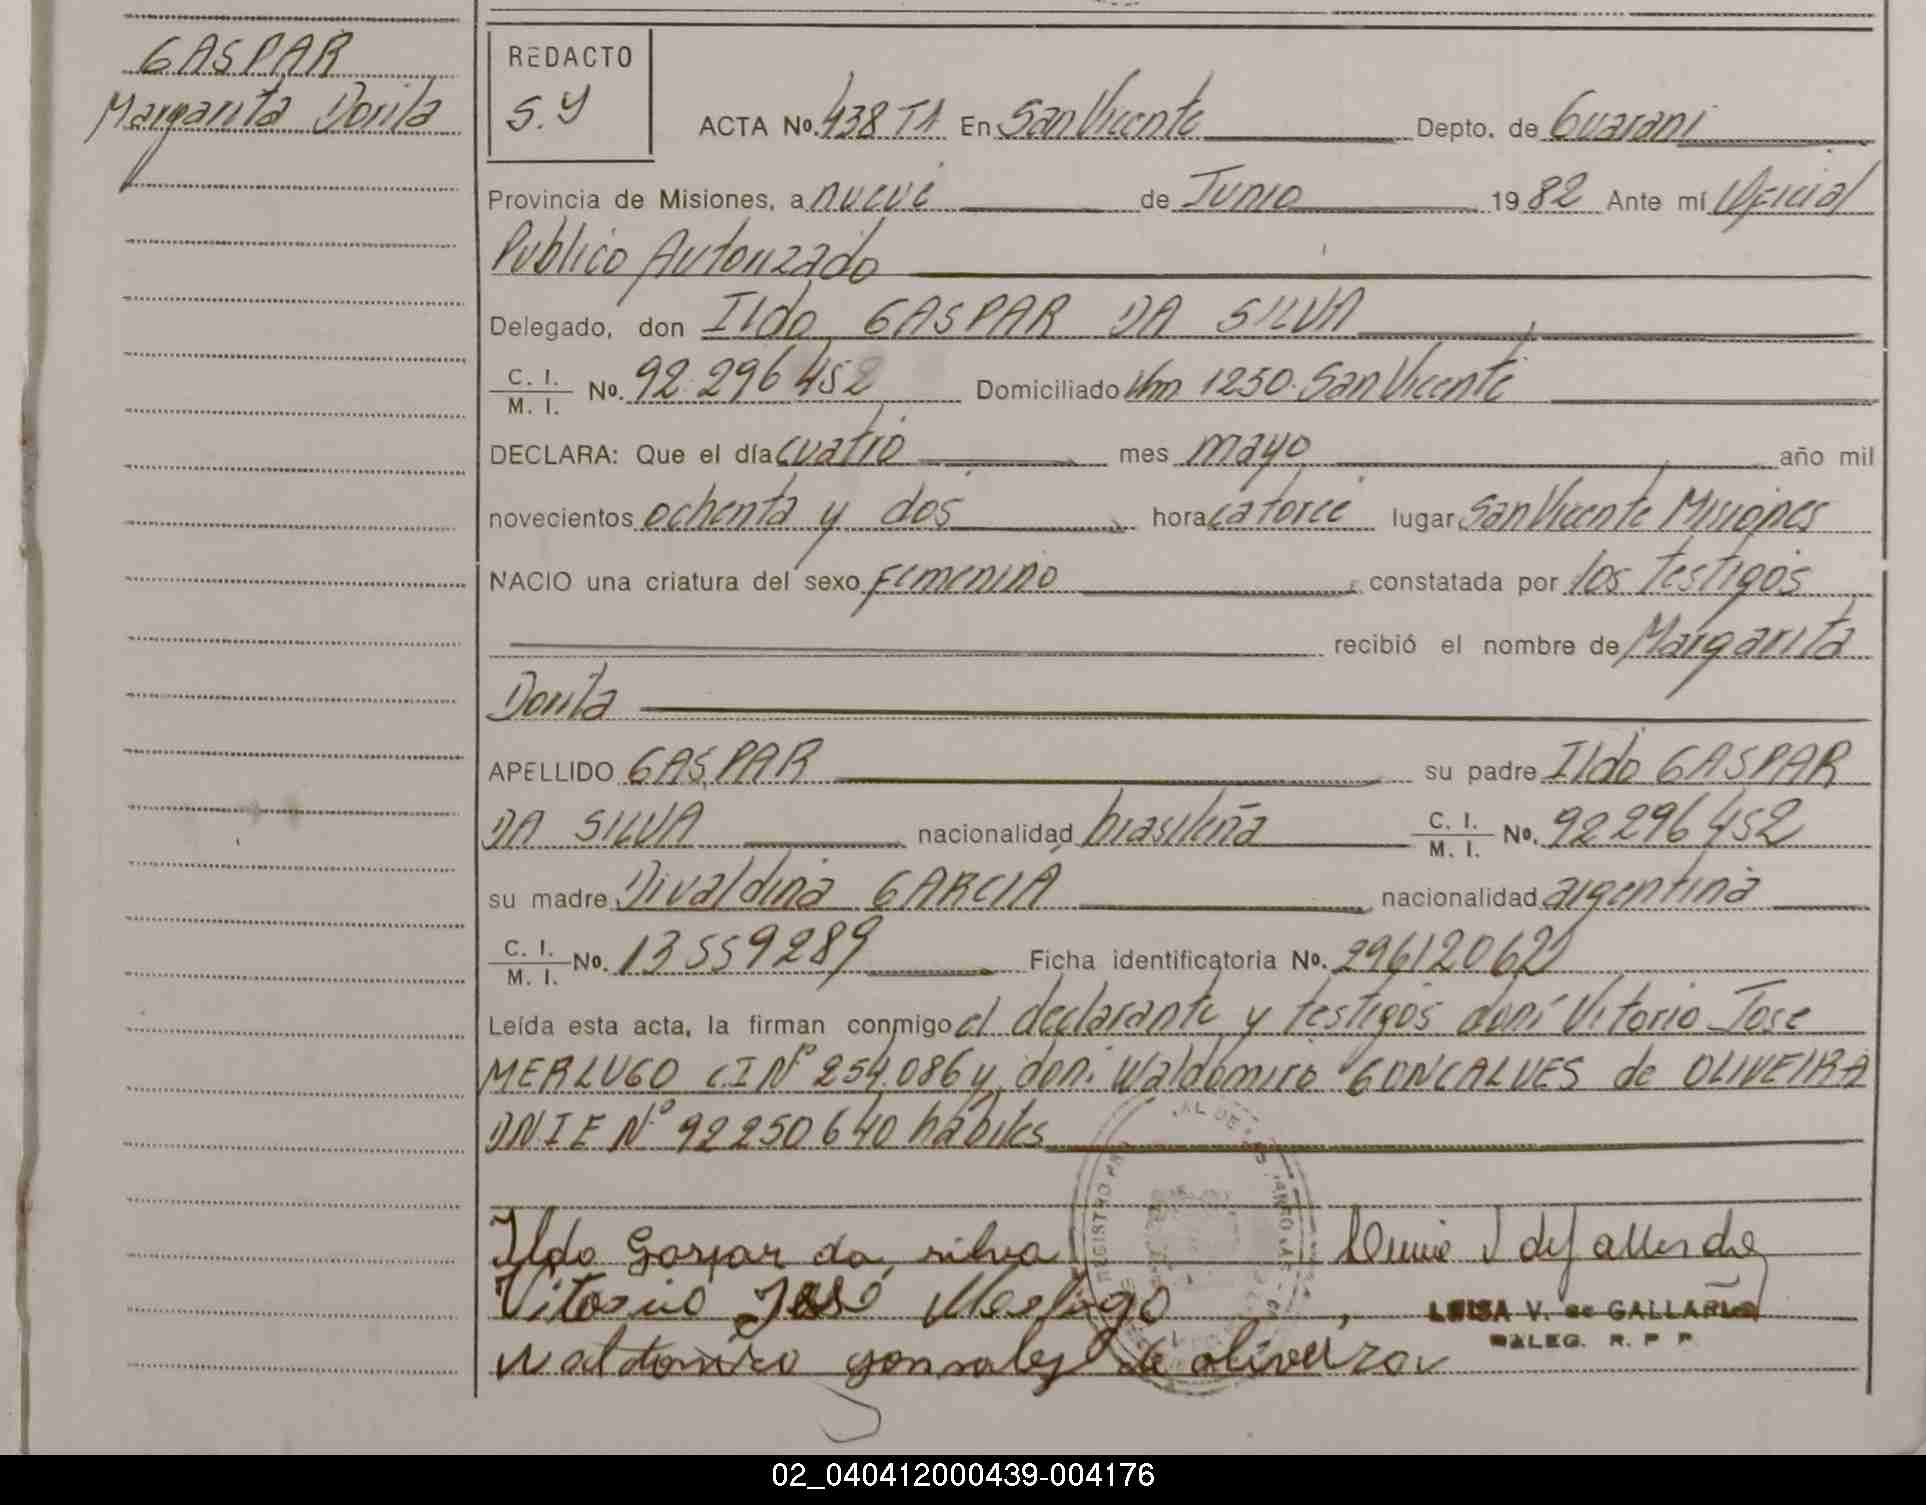 GASPAR
Margarita Dorila
REDACTO
S.Y
ACTA No. 438 T1 En San Vicente Depto. de Guarani
Provincia de Misiones, a nueve de Junio 1982 Ante mí Oficial
Publico Autorizado
Delegado, don Ildo GASPAR DA SILVA
C. I.
M. I. No. 92.296452 Domiciliado Km 1250 San Vicente
DECLARA: Que el día cuatro mes mayo año mil
novecientos ochenta y dos hora catorce lugar San Vicente Misiones
NACIO una criatura del sexo Femenino constatada por los testigos
recibió el nombre de Margarita
Dorila
APELLIDO GASPAR su padre Ildo GASPAR
DA SILVA nacionalidad brasileña C. I.
M. I. No. 92296452
su madre Divaldina GARCIA nacionalidad argentina
C. I.
M. I. No. 13559289 Ficha identificatoria No. 29612062
Leída esta acta, la firman conmigo el declarante y testigos don: Vitorio Jose
MERLUGO C.I Nº 254.086 y don: Waldomiro GONCALVES de OLIVEIRA
DNIE Nº 92250640 hábiles
Ildo Gaspar da silva
Vitorio José Merlugo
Waldomiro gonsalves de oliveira
LUISA V. de GALLARDO
DALEG. R. P P.
02_040412000439-004176